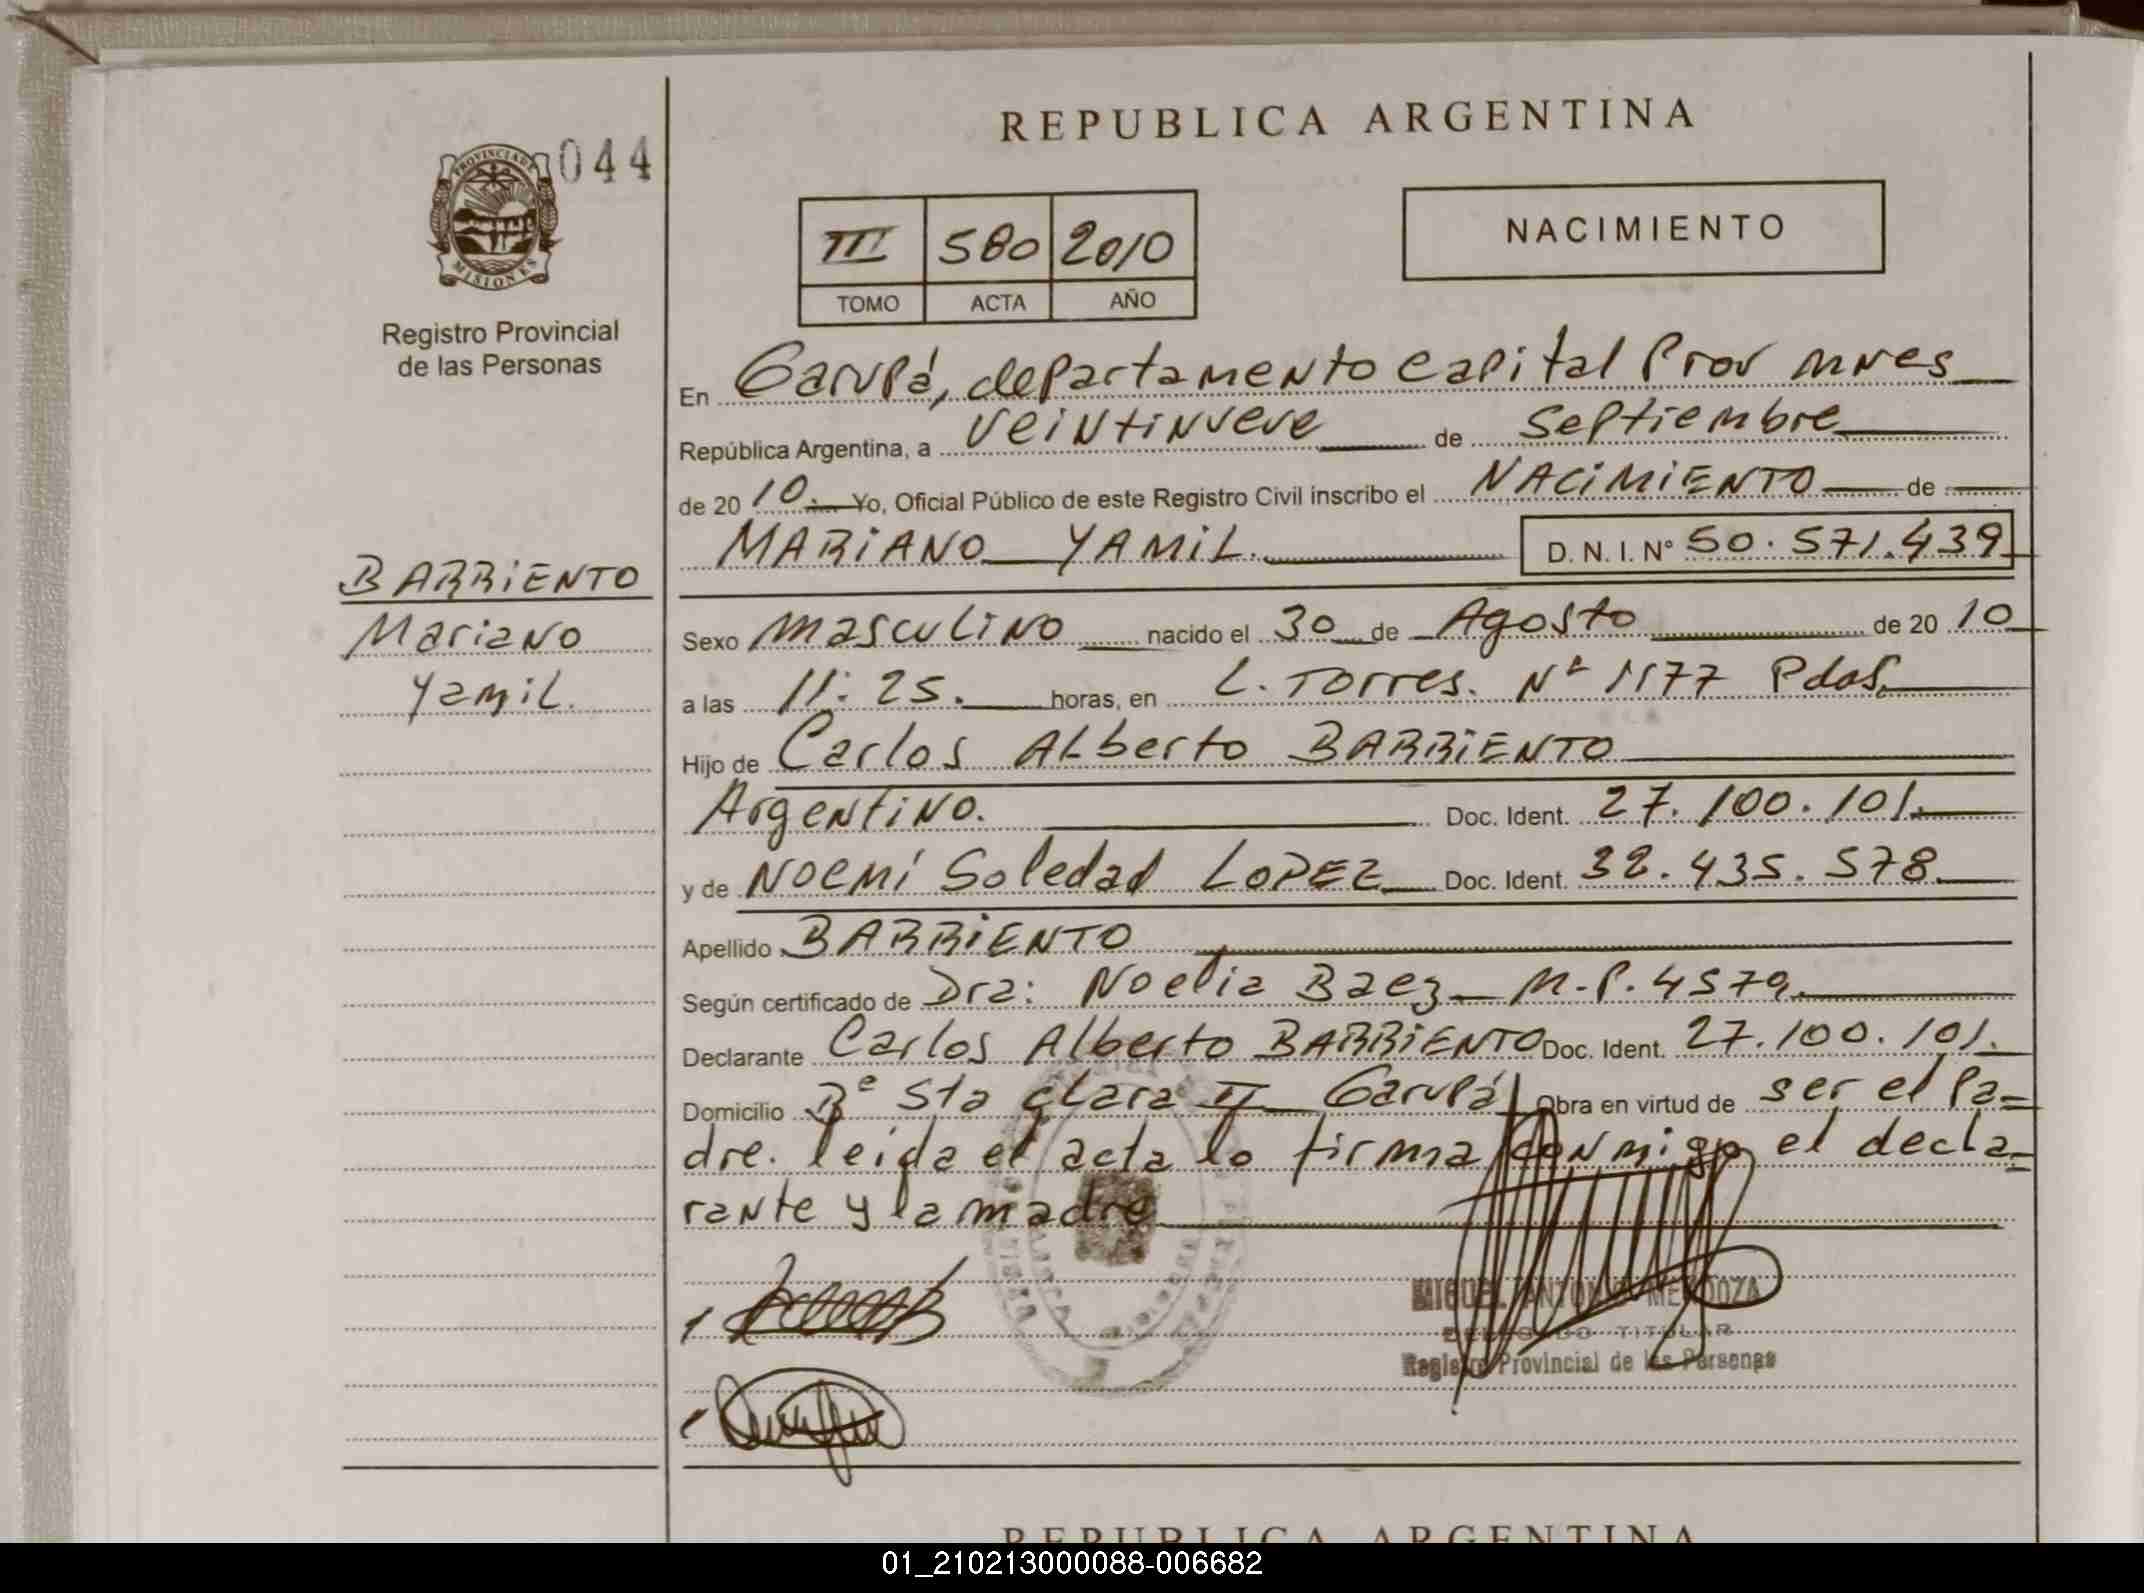 REPUBLICA ARGENTINA
PROVINCIA DE
MISIONES
044
Registro Provincial
de las Personas
III 580 2010
TOMO ACTA AÑO
NACIMIENTO
En Garupá, departamento Capital Prov mnes
República Argentina, a veintinueve de septiembre
de 20 10. Yo, Oficial Público de este Registro Civil inscribo el NACIMIENTO de
MARIANO YAMIL. D. N. I. N° 50.571.439
BARRIENTO
Mariano
Yamil.
Sexo masculino nacido el 30 de Agosto de 20 10
a las 11:25. horas, en L. Torres. Nº 1177 Pdas.
Hijo de Carlos Alberto BARRIENTO
Argentino. Doc. Ident. 27.100.101.
y de Noemí Soledad LOPEZ Doc. Ident. 32.435.578.
Apellido BARRIENTO
Según certificado de Dra: Noelia Baez M.P. 4579.
Declarante Carlos Alberto BARRIENTO Doc. Ident. 27.100.101.
Domicilio Bº Sta Clara II Garupá Obra en virtud de ser el pa=
dre. leida el acta lo firma conmigo el decla=
rante y la madre
MIGUEL ANTONIO MENDOZA
DELEGADO TITULAR
Registro Provincial de las Personas
REPUBLICA ARGENTINA
01_210213000088-006682